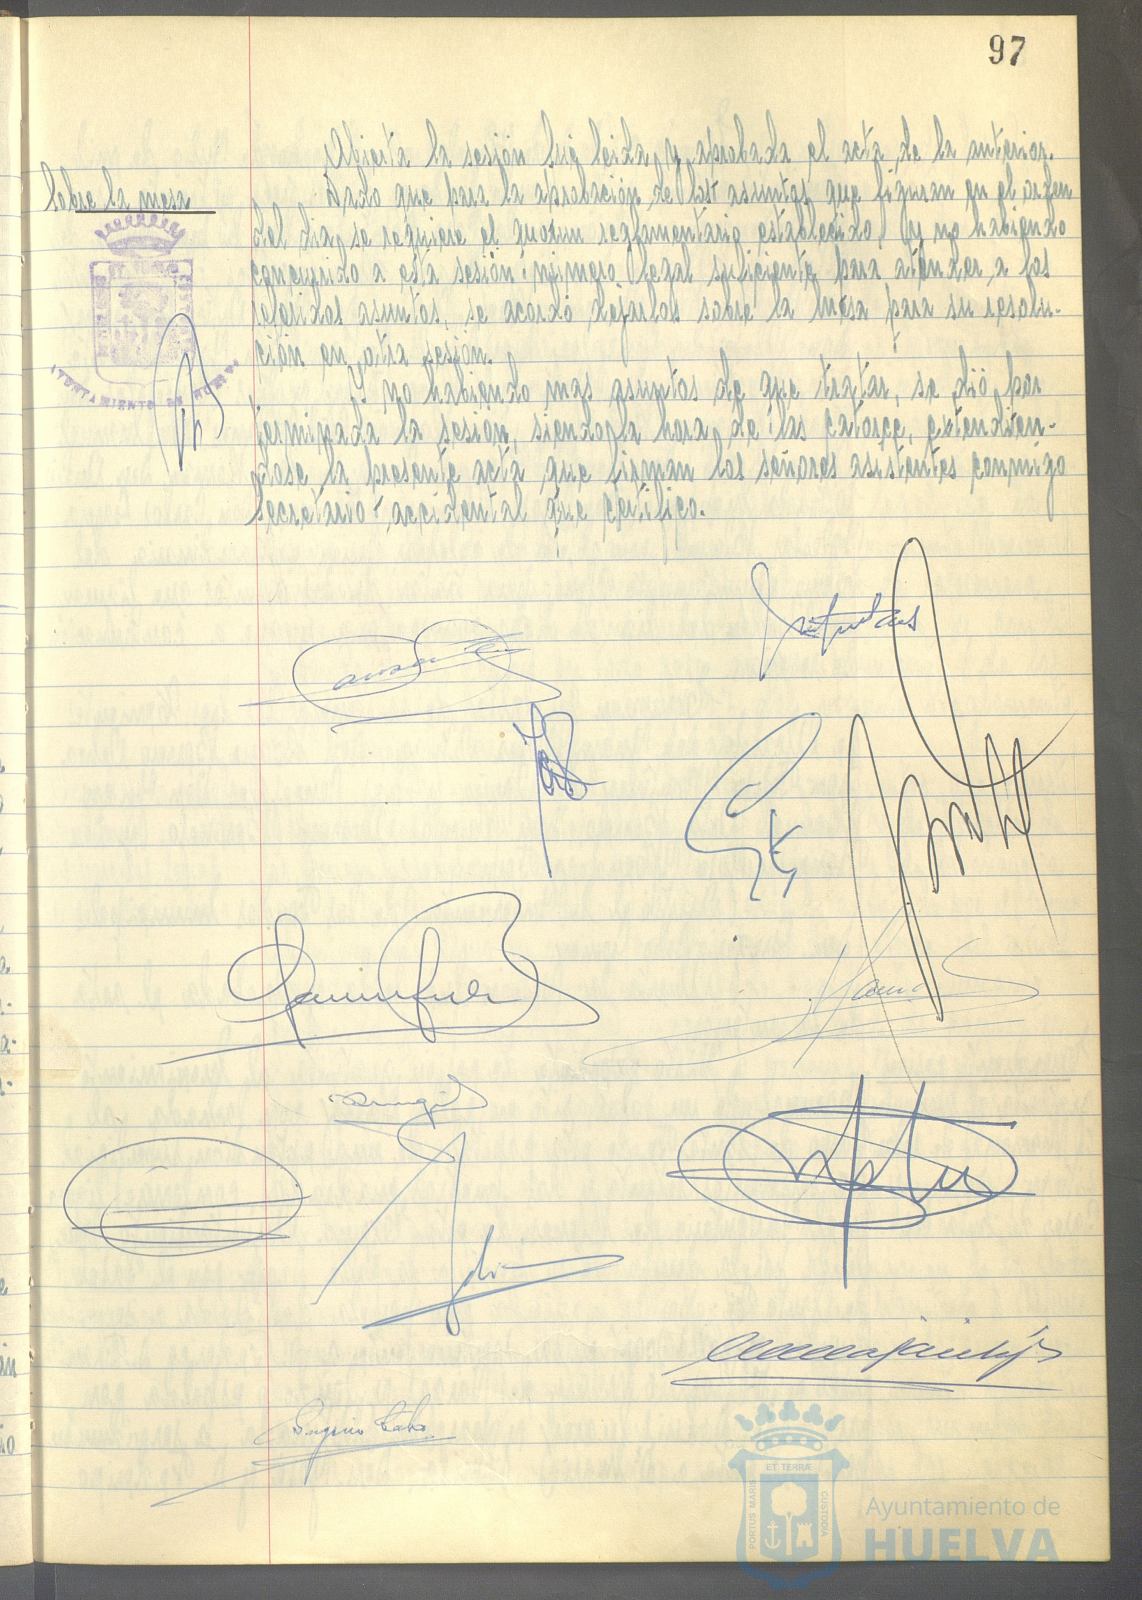 97
Abierta la sesión fué leida y aprobada el acta de la anterior.
Sobre la mesa
Dado que para la aprobación de los asuntos que figuran en el orden
del dia, se requiere el quorum reglamentario establecido, y no habiendo
concurrido a esta sesión número legal suficiente para atender a los
referidos asuntos, se acordó dejarlos sobre la mesa para su resolu-
ción en otra sesión.
Y no habiendo mas asuntos de que tratar, se dió por
terminada la sesión, siendo la hora de las catorce, extendien-
dose la presente acta que firman los señores asistentes conmigo
secretario accidental que certifico.
AYUNTAMIENTO DE HUELVA
PORTUS MARIS
ET TERRÆ
CUSTODIA
Ayuntamiento de
HUELVA